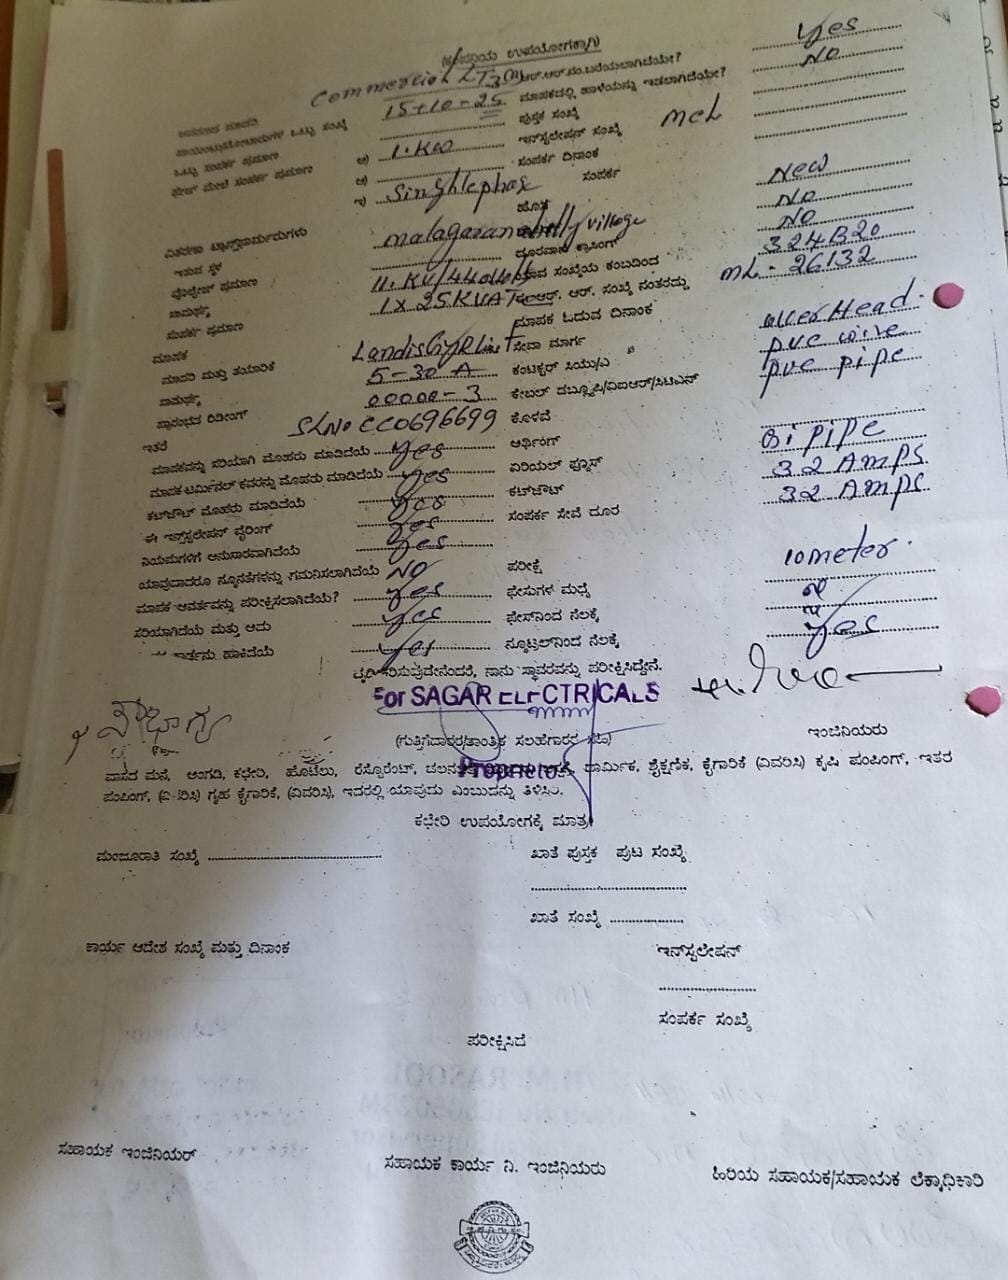 (ಕಂಪನಿಯ ಉಪಯೋಗಕ್ಕಾಗಿ)
Commercial LT3(a) ಆರ್.ಆರ್.ನಂ.ಬರೆಯಲಾಗಿದೆಯೇ? Yes
15-10-25 ಮಾಪಕದಲ್ಲಿ ಹಾಳೆಯನ್ನು ಇಡಲಾಗಿದೆಯೇ? No
ಒಟ್ಟು ಸಂಖ್ಯೆ ಪುಸ್ತಕ ಸಂಖ್ಯೆ
ಒಟ್ಟು ಸಂಪರ್ಕ ಪ್ರಮಾಣ ಅ) 1.KW ಇನ್‌ಸ್ಟಲೇಷನ್ ಸಂಖ್ಯೆ MCL
ಫೇಜ್ ಮೇಲೆ ಸಂಪರ್ಕ ಪ್ರಮಾಣ ಆ) ಸಂಪರ್ಕ ದಿನಾಂಕ
ಇ) Singhlephase ಸಂಪರ್ಕ
ಹೊಸ New
ವಿತರಣಾ ಟ್ರಾನ್ಸ್‌ಫಾರ್ಮರುಗಳು No
ಇರುವ ಸ್ಥಳ malagaranahally village ದೂರವಾಣಿ ಕ್ರಾಸಿಂಗ್ No
ವೋಲ್ಟೇಜ್ ಪ್ರಮಾಣ 11.KV/440 ಸಂಖ್ಯೆಯ ಕಂಬದಿಂದ 324B20
ಸಾಮರ್ಥ್ಯ 1x25KVA ಆರ್. ಸಂಖ್ಯೆ ನಂತರದ್ದು ML-26132
ಸಂಪರ್ಕ ಪ್ರಮಾಣ ಮಾಪಕ ಓದುವ ದಿನಾಂಕ
ಮಾಪಕ
ಮಾದರಿ ಮತ್ತು ತಯಾರಿಕೆ ಸೇವಾ ಮಾರ್ಗ over Head
ಸಾಮರ್ಥ್ಯ 5-30 A ಕಂಟಕ್ಟರ್ ಸಿಯು/ಎ pvc wire
ಪ್ರಾರಂಭದ ರಿಡಿಂಗ್ 00000-3 ಕೇಬಲ್ ಡಬ್ಲ್ಯೂಪಿ/ವಿಐಆರ್/ಸಿಟಿಎಸ್ pvc pipe
ಇತರೆ SLNo CC0696699 ಕೊಳವೆ
ಮಾಪಕವನ್ನು ಸರಿಯಾಗಿ ಮೊಹರು ಮಾಡಿದೆಯೆ Yes ಆರ್ಥಿಂಗ್ Gi pipe
ಮಾಪಕ ಟರ್ಮಿನಲ್ ಕವರನ್ನು ಮೊಹರು ಮಾಡಿದೆಯೆ Yes ಏರಿಯಲ್ ಫ್ಯೂಸ್ 32 Amps
ಕಟ್‌ಔಟ್ ಮೊಹರು ಮಾಡಿದೆಯೆ Yes ಕಟ್‌ಔಟ್ 32 Amps
ಈ ಇನ್‌ಸ್ಟಲೇಷನ್ ವೈರಿಂಗ್ Yes ಸಂಪರ್ಕ ಸೇವೆ ದೂರ
ನಿಯಮಗಳಿಗೆ ಅನುಸಾರವಾಗಿದೆಯೆ Yes 10meter.
ಯಾವುದಾದರೂ ನ್ಯೂನತೆಗಳನ್ನು ಗಮನಿಸಲಾಗಿದೆಯೆ No ಪರೀಕ್ಷೆ
ಮಾಪಕ ಆವರ್ತವನ್ನು ಪರೀಕ್ಷಿಸಲಾಗಿದೆಯೆ? Yes ಫೇಸುಗಳ ಮಧ್ಯೆ
ಸರಿಯಾಗಿದೆಯೆ ಮತ್ತು ಅದು Yes ಫೇಸ್‌ನಿಂದ ನೆಲಕ್ಕೆ
ಹಾಕಿದೆಯೆ Yes ನ್ಯೂಟ್ರಲ್‌ನಿಂದ ನೆಲಕ್ಕೆ Yes
ದೃಢೀಕರಿಸುವುದೇನೆಂದರೆ, ನಾನು ಸ್ಥಾವರವನ್ನು ಪರೀಕ್ಷಿಸಿದ್ದೇನೆ.
For SAGAR ELECTRICALS
ಸೌಭಾಗ್ಯ
(ಗುತ್ತಿಗೆದಾರರ/ತಾಂತ್ರಿಕ ಸಲಹೆಗಾರರ ಸಹಿ) ಇಂಜಿನಿಯರು
Proprietor
ವಾಸದ ಮನೆ, ಅಂಗಡಿ, ಕಛೇರಿ, ಹೊಟೆಲು, ರೆಸ್ಟೊರೆಂಟ್, ಧಾರ್ಮಿಕ, ಶೈಕ್ಷಣಿಕ, ಕೈಗಾರಿಕೆ (ವಿವರಿಸಿ) ಕೃಷಿ ಪಂಪಿಂಗ್, ಇತರ
ಪಂಪಿಂಗ್, (ವಿವರಿಸಿ) ಗೃಹ ಕೈಗಾರಿಕೆ, (ವಿವರಿಸಿ), ಇದರಲ್ಲಿ ಯಾವುದು ಎಂಬುದನ್ನು ತಿಳಿಸಿರಿ.
ಕಛೇರಿ ಉಪಯೋಗಕ್ಕೆ ಮಾತ್ರ
ಮಂಜೂರಾತಿ ಸಂಖ್ಯೆ ಖಾತೆ ಪುಸ್ತಕ ಪುಟ ಸಂಖ್ಯೆ
ಖಾತೆ ಸಂಖ್ಯೆ
ಕಾರ್ಯ ಆದೇಶ ಸಂಖ್ಯೆ ಮತ್ತು ದಿನಾಂಕ ಇನ್‌ಸ್ಟಲೇಷನ್
ಸಂಪರ್ಕ ಸಂಖ್ಯೆ
ಪರೀಕ್ಷಿಸಿದೆ
ಸಹಾಯಕ ಇಂಜಿನಿಯರ್ ಸಹಾಯಕ ಕಾರ್ಯ ನಿ. ಇಂಜಿನಿಯರು ಹಿರಿಯ ಸಹಾಯಕ/ಸಹಾಯಕ ಲೆಕ್ಕಾಧಿಕಾರಿ